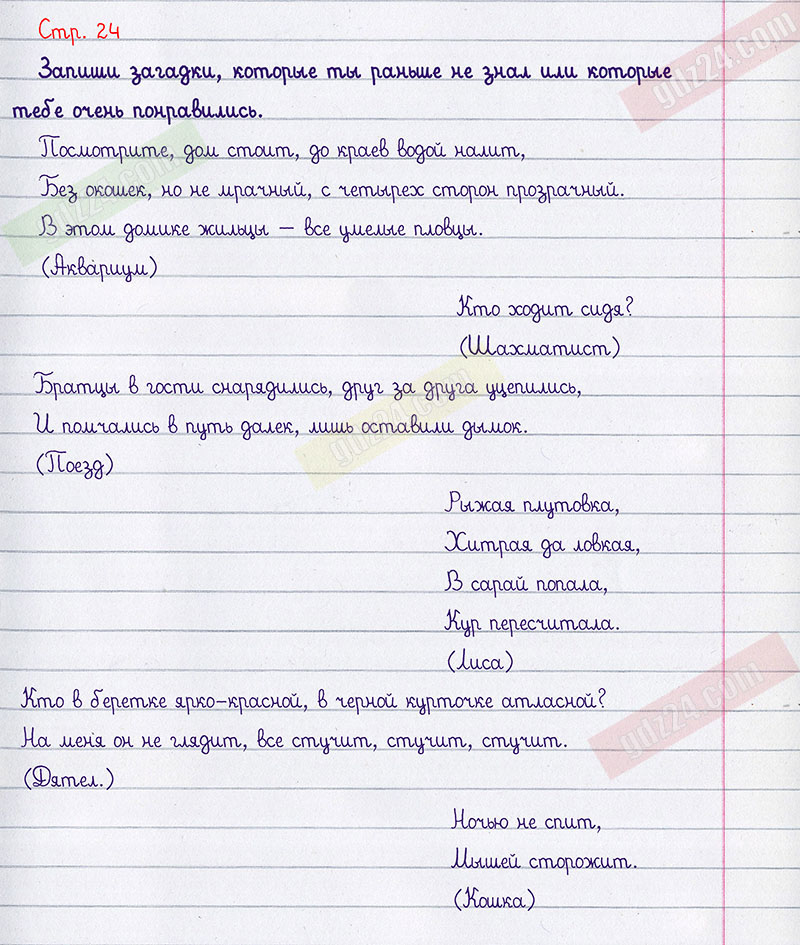 Стр. 24
Запиши загадки, которые ты раньше не знал или которые
тебе очень понравились.
Посмотрите, дом стоит, до краев водой налит,
Без окошек, но не мрачный, с четырех сторон прозрачный.
В этом домике жильцы – все умелые пловцы.
(Аквариум)
Кто ходит сидя?
(Шахматист)
Братцы в гости снарядились, друг за друга уцепились,
И помчались в путь далек, лишь оставили дымок.
(Поезд)
Рыжая плутовка,
Хитрая да ловкая,
В сарай попала,
Кур пересчитала.
(Лиса)
Кто в беретке ярко-красной, в черной курточке атласной?
На меня он не глядит, все стучит, стучит, стучит.
(Дятел.)
Ночью не спит,
Мышей сторожит.
(Кошка)
gdz24.com
gdz24.com
gdz24.com
gdz24.com